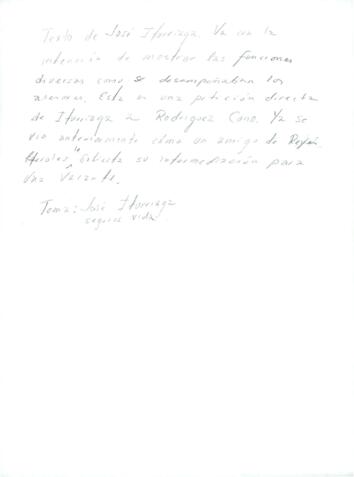 Texto de José Iturriaga. Va con la
intención de mostrar las funciones
diversas como se desempeñaban los
Esta es una petición directa
de Iturriaga a Rodriguez Cano. Ya se
vio anteriormente cómo un amigo de
le solicita su intermediación para
una vacante.
Tema: José Iturriaga
seguros vida.